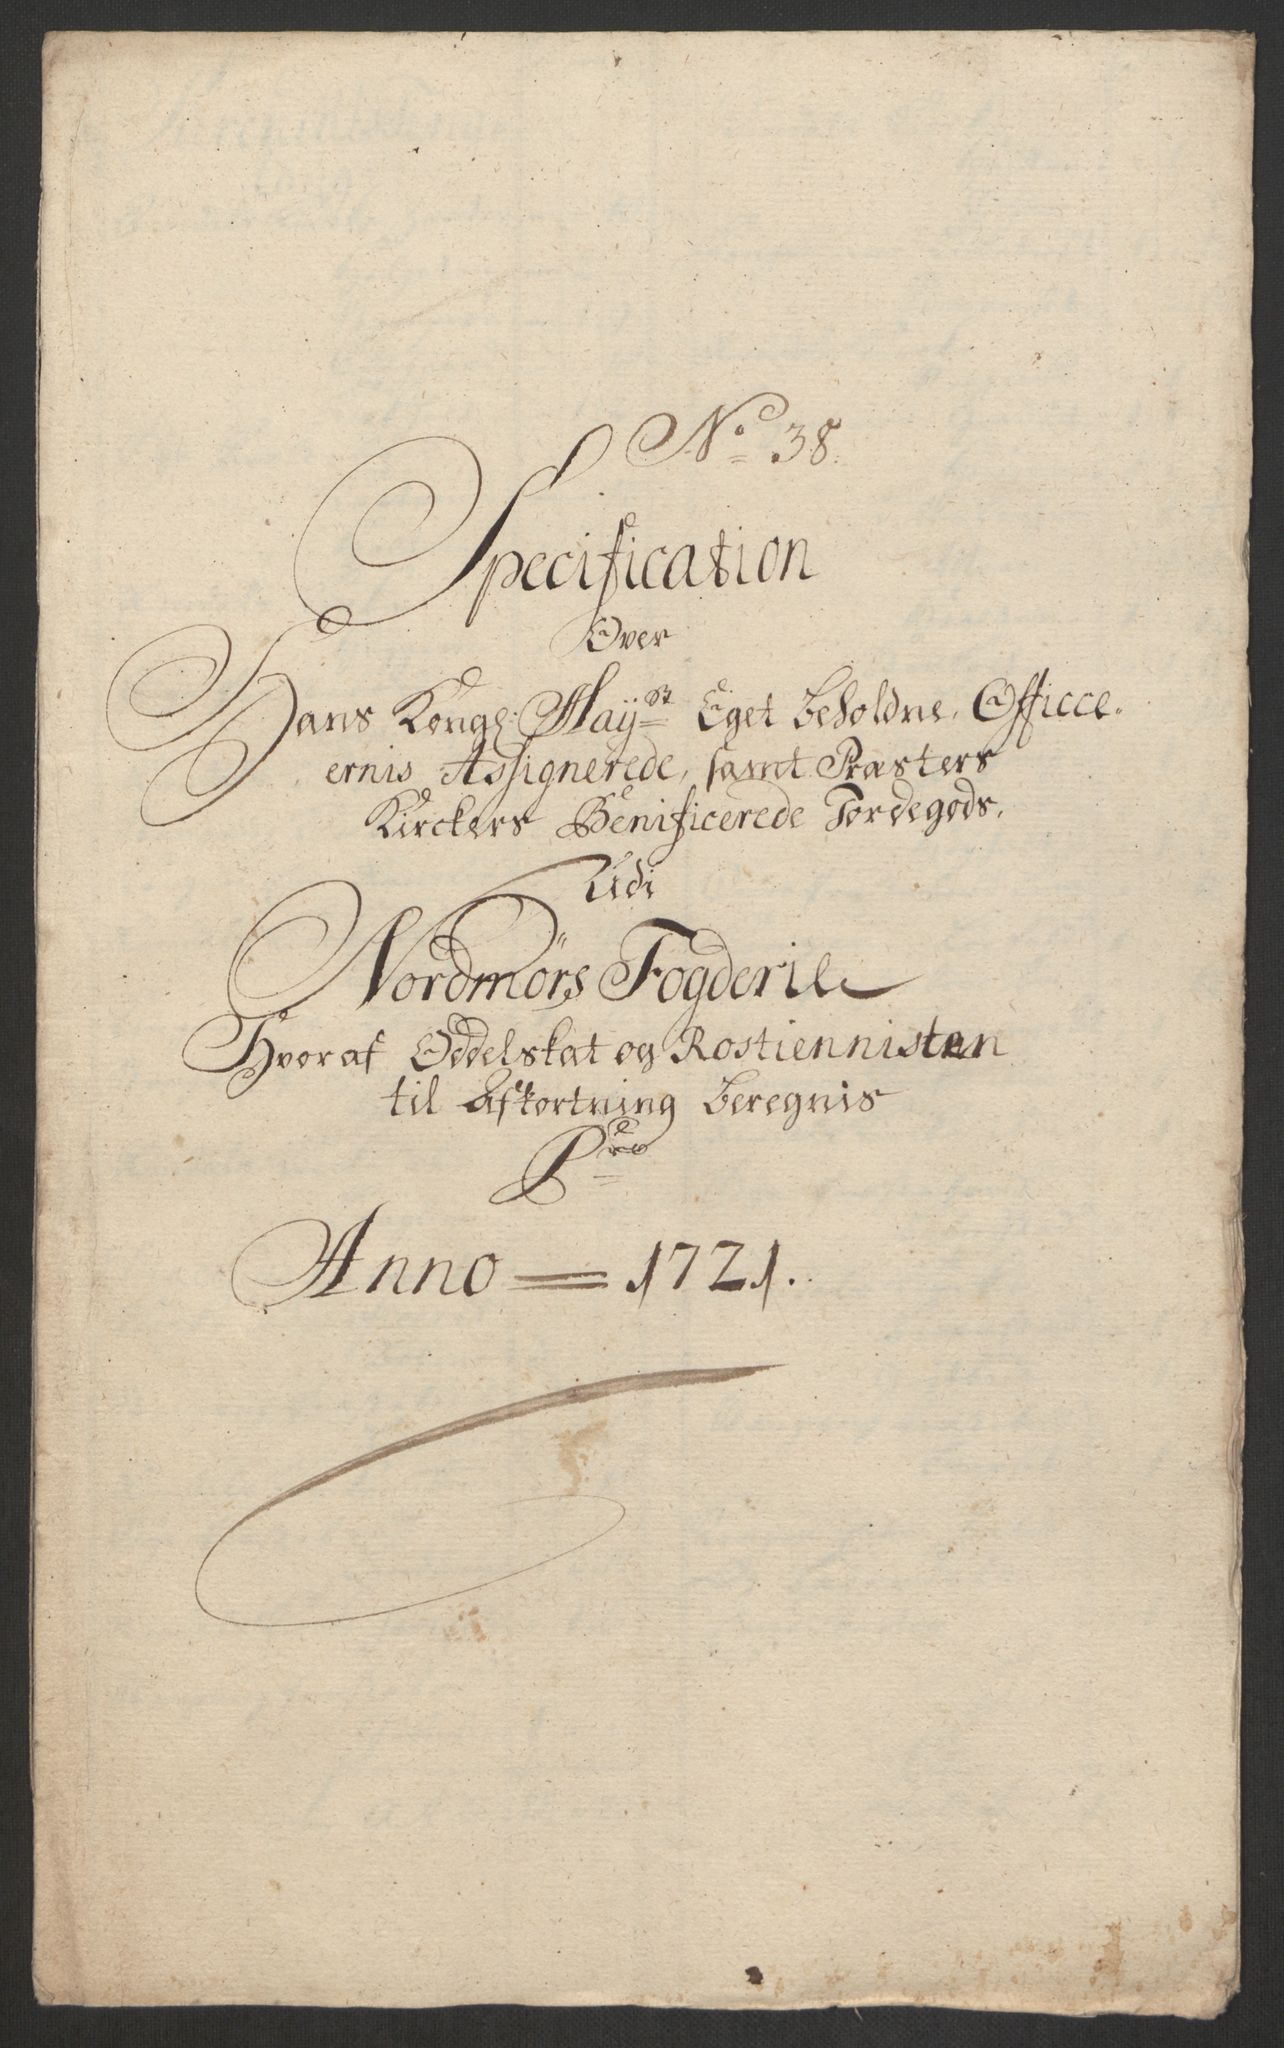 No 38.
Specification
Over
Hans Kongl: Mayst Eget beholdne, Officce-
ernis Assignerede, samt Præsters
Kirckers Benificerede Jordegods,
Udi
Nordmörs Fogderie
Hvoraf Oddelskat og Rostiennisten
til Afkortning beregnis
Pro
Anno = 1721.